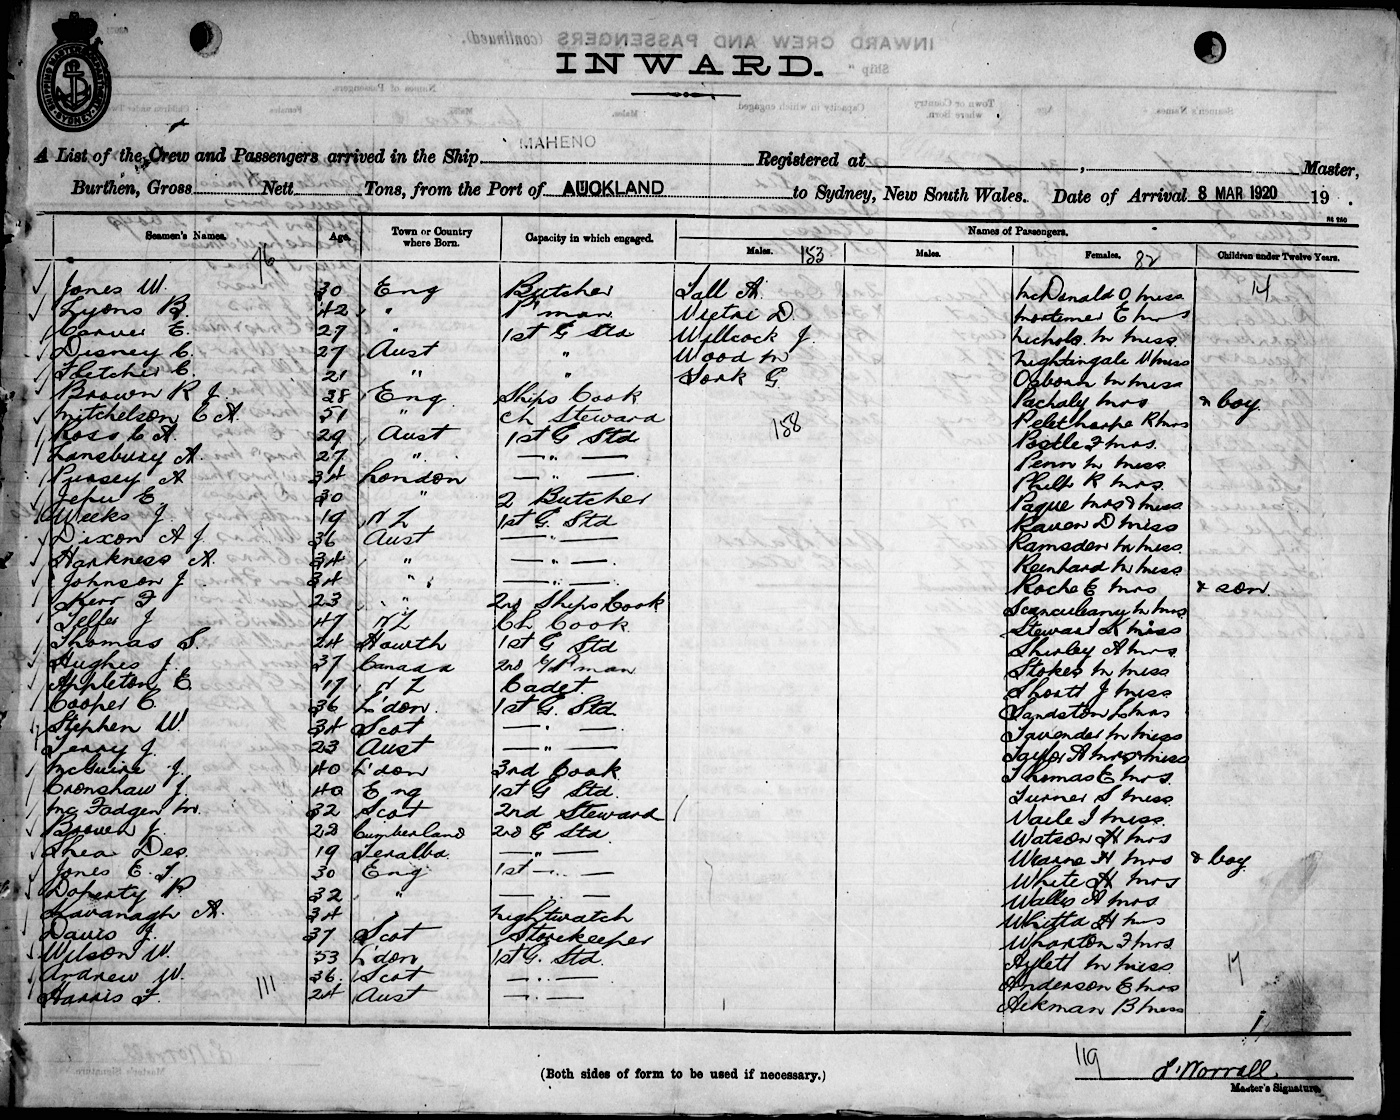 INWARD.
A List of the Crew and Passengers arrived in the Ship MAHENO Registered at , Master,
Burthen, Gross Nett Tons, from the Port of AUCKLAND to Sydney, New South Wales. Date of Arrival 8 MAR 1920 19 .
Seamen's Names. Age. Town or Country where Born. Capacity in which engaged. Names of Passengers.
Males. Males. Females. Children under Twelve Years.
76 153 82 14
Jones W. 30 Eng Butcher Tall A. McDonald O Miss
Lyons B. 42 " P'man Vietri D. Mortimer E Mrs
Carver E. 27 " 1st G Std Willcock J. Nichols M Miss
Disney C. 27 Aust " Wood M Nightingale V Miss
Fletcher C. 21 " " York G. Osborn M Miss
Brown R J. 28 Eng. Ships Cook Pachaly Mrs & boy
Mitchelson E A. 51 " Ch Steward Pelethorpe R Mrs
Ross C A. 29 Aust 1st G Std 158 Postle F Mrs.
Lansbury A. 27 " — " — Penn M Miss
Pursey A 34 London — " — Philp R Mrs.
Jehu E. 30 " 2 Butcher Pague Mrs & Miss
Weeks J. 19 NZ 1st G. Std Raven D Miss
Dixon A J. 36 Aust — " — Ramsden M Miss
Harkness A. 34 " — " — Reinhard M Miss
Johnson J. 34 " — " — Roche E Mrs & son
Kerr F 23 " 2nd Ships Cook M Mrs
Telfer J 47 NZ Ch Cook Stewart K Miss
Thomas S. 24 Howth 1st G Std Shirley A Mrs
Hughes J. 37 Canada 2nd P'man Stokes M Miss
Appleton E. 17 NZ Cadet Shortt J Miss
Cooper C. 36 L'don. 1st G. Std Sandston L Mrs
Stephen W. 34 Scot — " — Lavender M Miss
Terry J. 23 Aust — " — Taylor A Mrs & Miss
McGuire J. 40 L'don 3rd Cook Thomas E Mrs.
Cronshaw J. 40 Eng 1st G Std Turner S Miss
McFadgen M. 32 Scot 2nd Steward Vaile I Miss.
Brown J. 22 Cumberland 2nd G Std Watson H Mrs
Shea Des. 19 Teralba. — " — Wearne H Mrs & boy
Jones E. T. 30 Eng 1st — " — White H Mrs
Doherty P. 32 " — " — Wallis A Mrs
Kavanagh A. 34 Nightwatch Whitta H Mrs
Davis J. 37 Scot Storekeeper Wharton F Mrs.
Wilson W. 53 L'don 1st G. Std. Aylett M Miss
Andrew W. 36. Scot — " — Anderson E Mrs 17
Harris F. 111 24 Aust — " — Aekman B Miss
119
(Both sides of form to be used if necessary.)
J. Worrall.
Master's Signature.